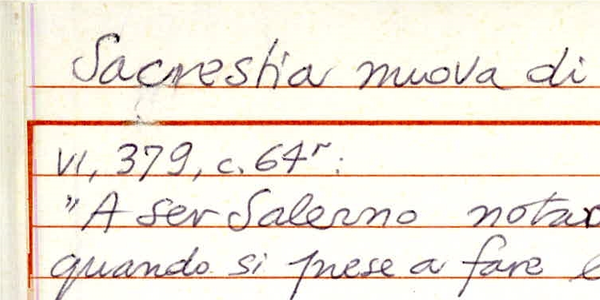 Sacrestia nuova di
VI, 379, c. 64r:
"A ser Salerno notar
quando si prese a fare